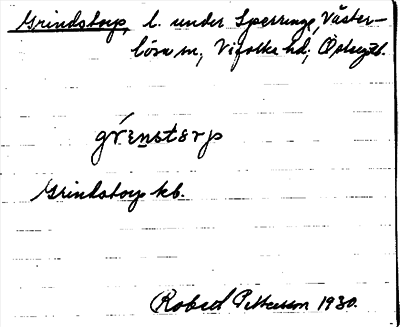 Grindstorp, l. under Sperringe, Väster-
lösa sn, Vifolka hd, Östergtl.
grenstærp
Grindstorp kb.
Robert Pettersson 1930.